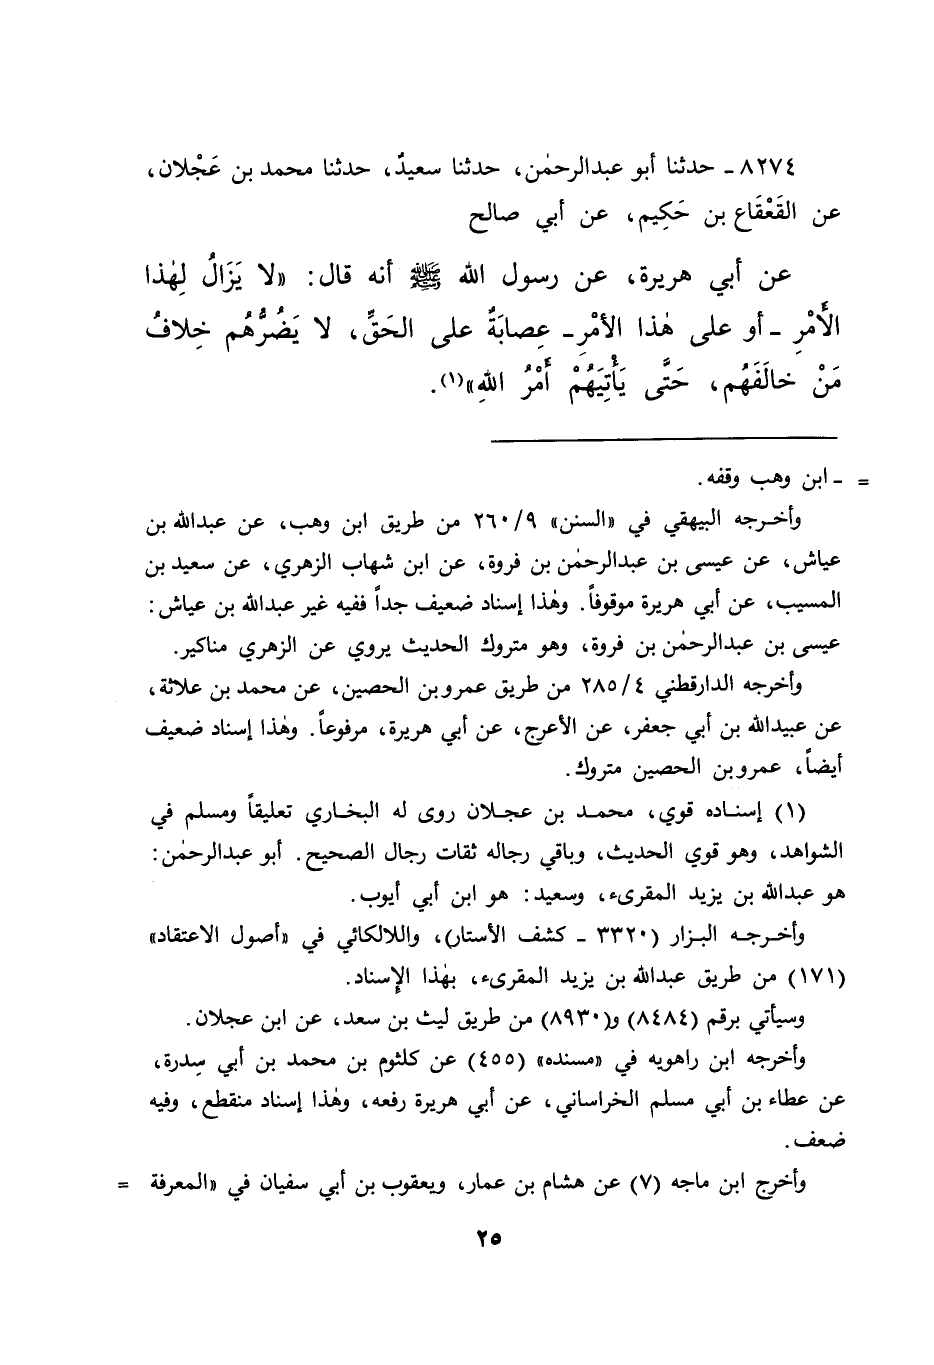 ٨٢٧٤ ـ حدثنا أبو عبدالرحمٰن، حدثنا سعيدٌ، حدثنا محمد بن عَجْلان،
عن القَعْقَاع بن حَكِيم، عن أبي صالح
عن أبي هريرة، عن رسول الله ﷺ أنه قال: «لا يَزَالُ لِهٰذا
الأَمْرِ ـ أو على هٰذا الأمْرِ ـ عِصابَةٌ على الحَقِّ، لا يَضُرُّهُم خِلافُ
مَنْ خالَفَهُم، حَتَّى يَأْتِيَهُمْ أَمْرُ اللهِ»(١).
= ـ ابن وهب وقفه.
وأخرجه البيهقي في «السنن» ٢٦٠/٩ من طريق ابن وهب، عن عبدالله بن
عياش، عن عيسى بن عبدالرحمٰن بن فروة، عن ابن شهاب الزهري، عن سعيد بن
المسيب، عن أبي هريرة موقوفاً. وهٰذا إسناد ضعيف جداً ففيه غير عبدالله بن عياش:
عيسى بن عبدالرحمٰن بن فروة، وهو متروك الحديث يروي عن الزهري مناكير.
وأخرجه الدارقطني ٢٨٥/٤ من طريق عمرو بن الحصين، عن محمد بن علاثة،
عن عبيدالله بن أبي جعفر، عن الأعرج، عن أبي هريرة، مرفوعاً. وهٰذا إسناد ضعيف
أيضاً، عمرو بن الحصين متروك.
(١) إسناده قوي، محمد بن عجلان روى له البخاري تعليقاً ومسلم في
الشواهد، وهو قوي الحديث، وباقي رجاله ثقات رجال الصحيح. أبو عبدالرحمٰن:
هو عبدالله بن يزيد المقرىء، وسعيد: هو ابن أبي أيوب.
وأخرجه البزار (٣٣٢٠ ـ كشف الأستار)، واللالكائي في «أصول الاعتقاد»
(١٧١) من طريق عبدالله بن يزيد المقرىء، بهٰذا الإسناد.
وسيأتي برقم (٨٤٨٤) و(٨٩٣٠) من طريق ليث بن سعد، عن ابن عجلان.
وأخرجه ابن راهويه في «مسنده» (٤٥٥) عن كلثوم بن محمد بن أبي سِدرة،
عن عطاء بن أبي مسلم الخراساني، عن أبي هريرة رفعه، وهٰذا إسناد منقطع، وفيه
ضعف.
وأخرج ابن ماجه (٧) عن هشام بن عمار، ويعقوب بن أبي سفيان في «المعرفة =
٢٥